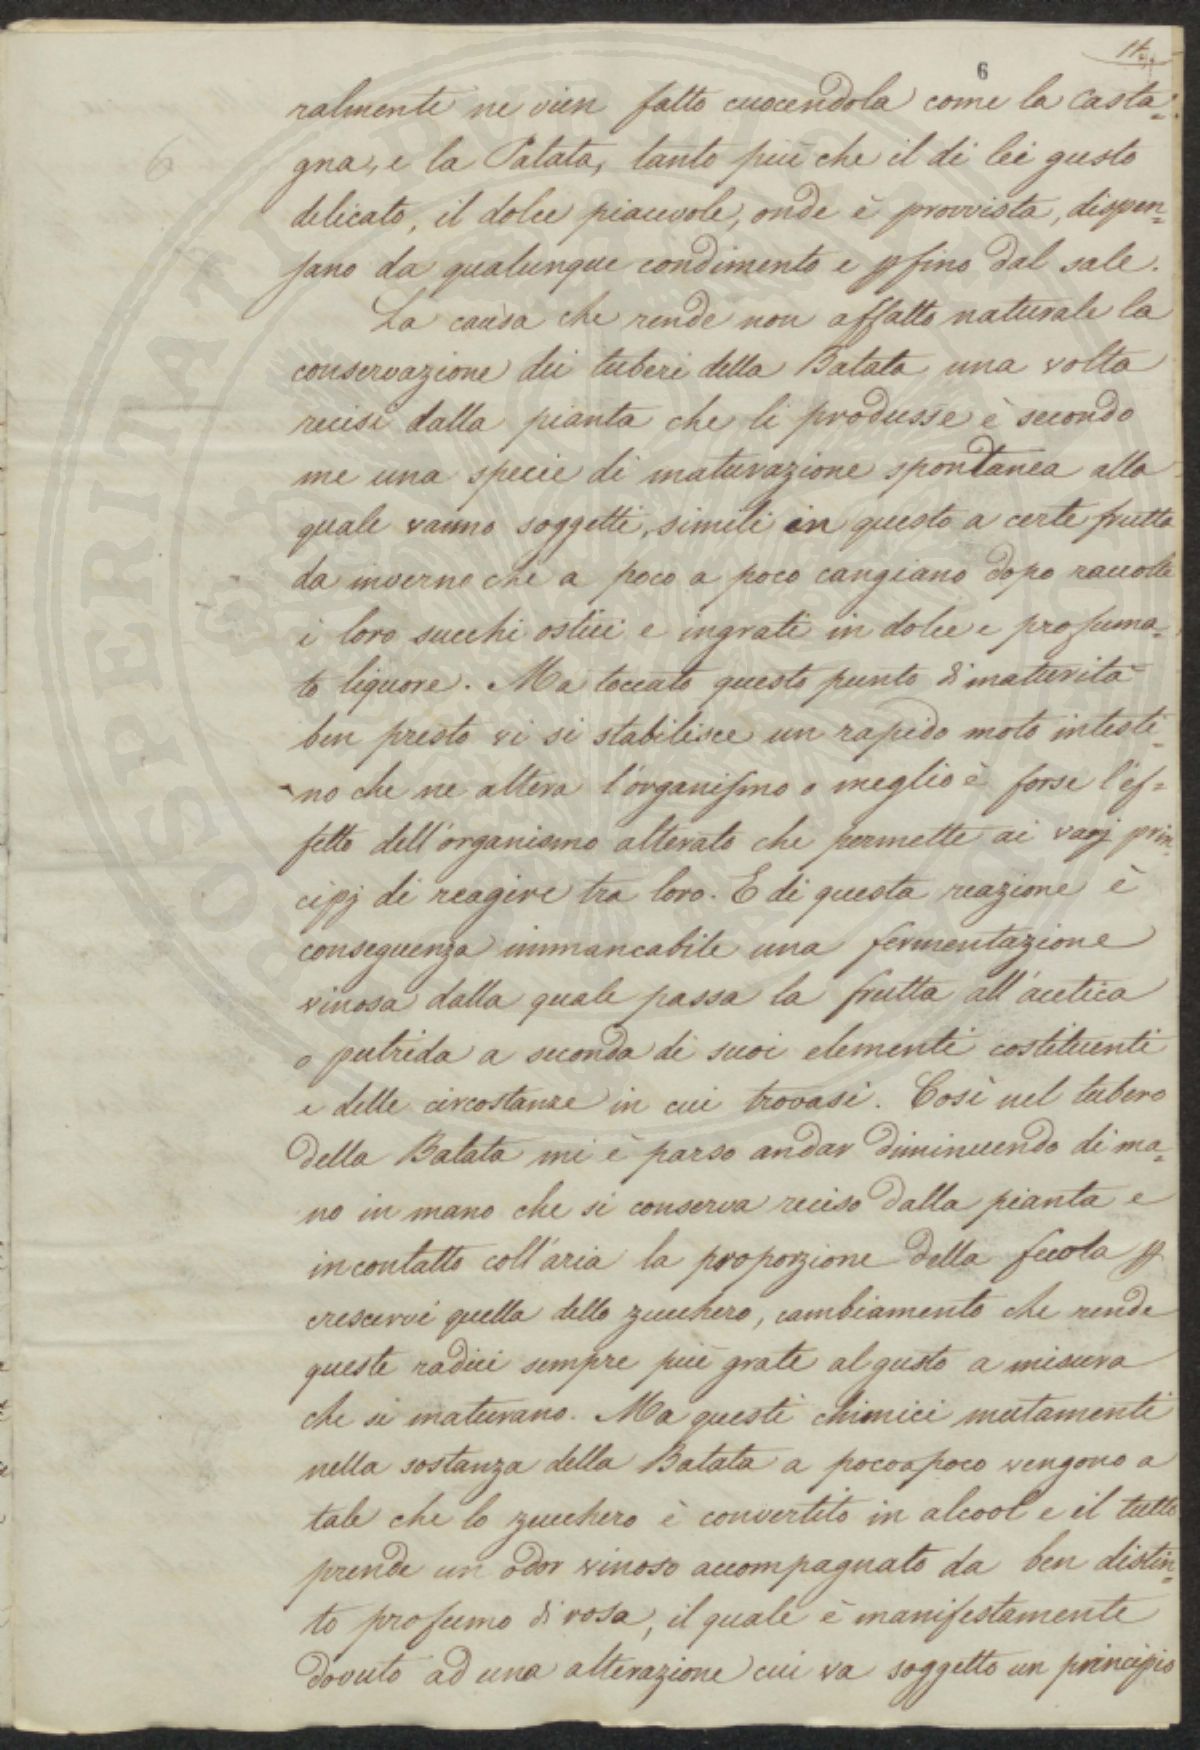 14.
6
ralmente ne vien fatto cuocendola come la Casta=
gna, e la Patata, tanto più che il di lei gusto
delicato, il dolce piacevole, onde è provvista, dispen=
sano da qualunque condimento e pfino dal sale.
La causa che rende non affatto naturale la
conservazione dei tuberi della Batata una volta
recisi dalla pianta che li produsse è secondo
me una specie di maturazione spontanea alla
quale vanno soggetti, simili in questo a certe frutta
da inverno che a poco a poco cangiano dopo raccolte
i loro succhi ostici e ingrati in dolce e profuma=
to liquore. Ma toccato questo punto di maturità
ben presto vi si stabilisce un rapido moto intesti=
no che ne altera l'organismo o meglio è forse l'ef=
fetto dell'organismo alterato che permette ai varj prin=
cipj di reagire tra loro. E di questa reazione è
conseguenza immancabile una fermentazione
vinosa dalla quale passa la frutta all'acetica
o putrida a seconda di suoi elementi costituenti
e delle circostanze in cui trovasi. Così nel tubero
della Batata mi è parso andar diminuendo di ma=
no in mano che si conserva reciso dalla pianta e
in contatto coll'aria la proporzione della fecola p
crescervi quella dello zucchero, cambiamento che rende
queste radici sempre più grate al gusto a misura
che si maturano. Ma questi chimici mutamenti
nella sostanza della Batata a poco a poco vengono a
tale che lo zucchero è convertito in alcool e il tutto
prende un odor vinoso accompagnato da ben distin=
to profumo di rosa, il quale è manifestamente
dovuto ad una alterazione cui va soggetto un principio
PROSPERITATI PUBLICAE